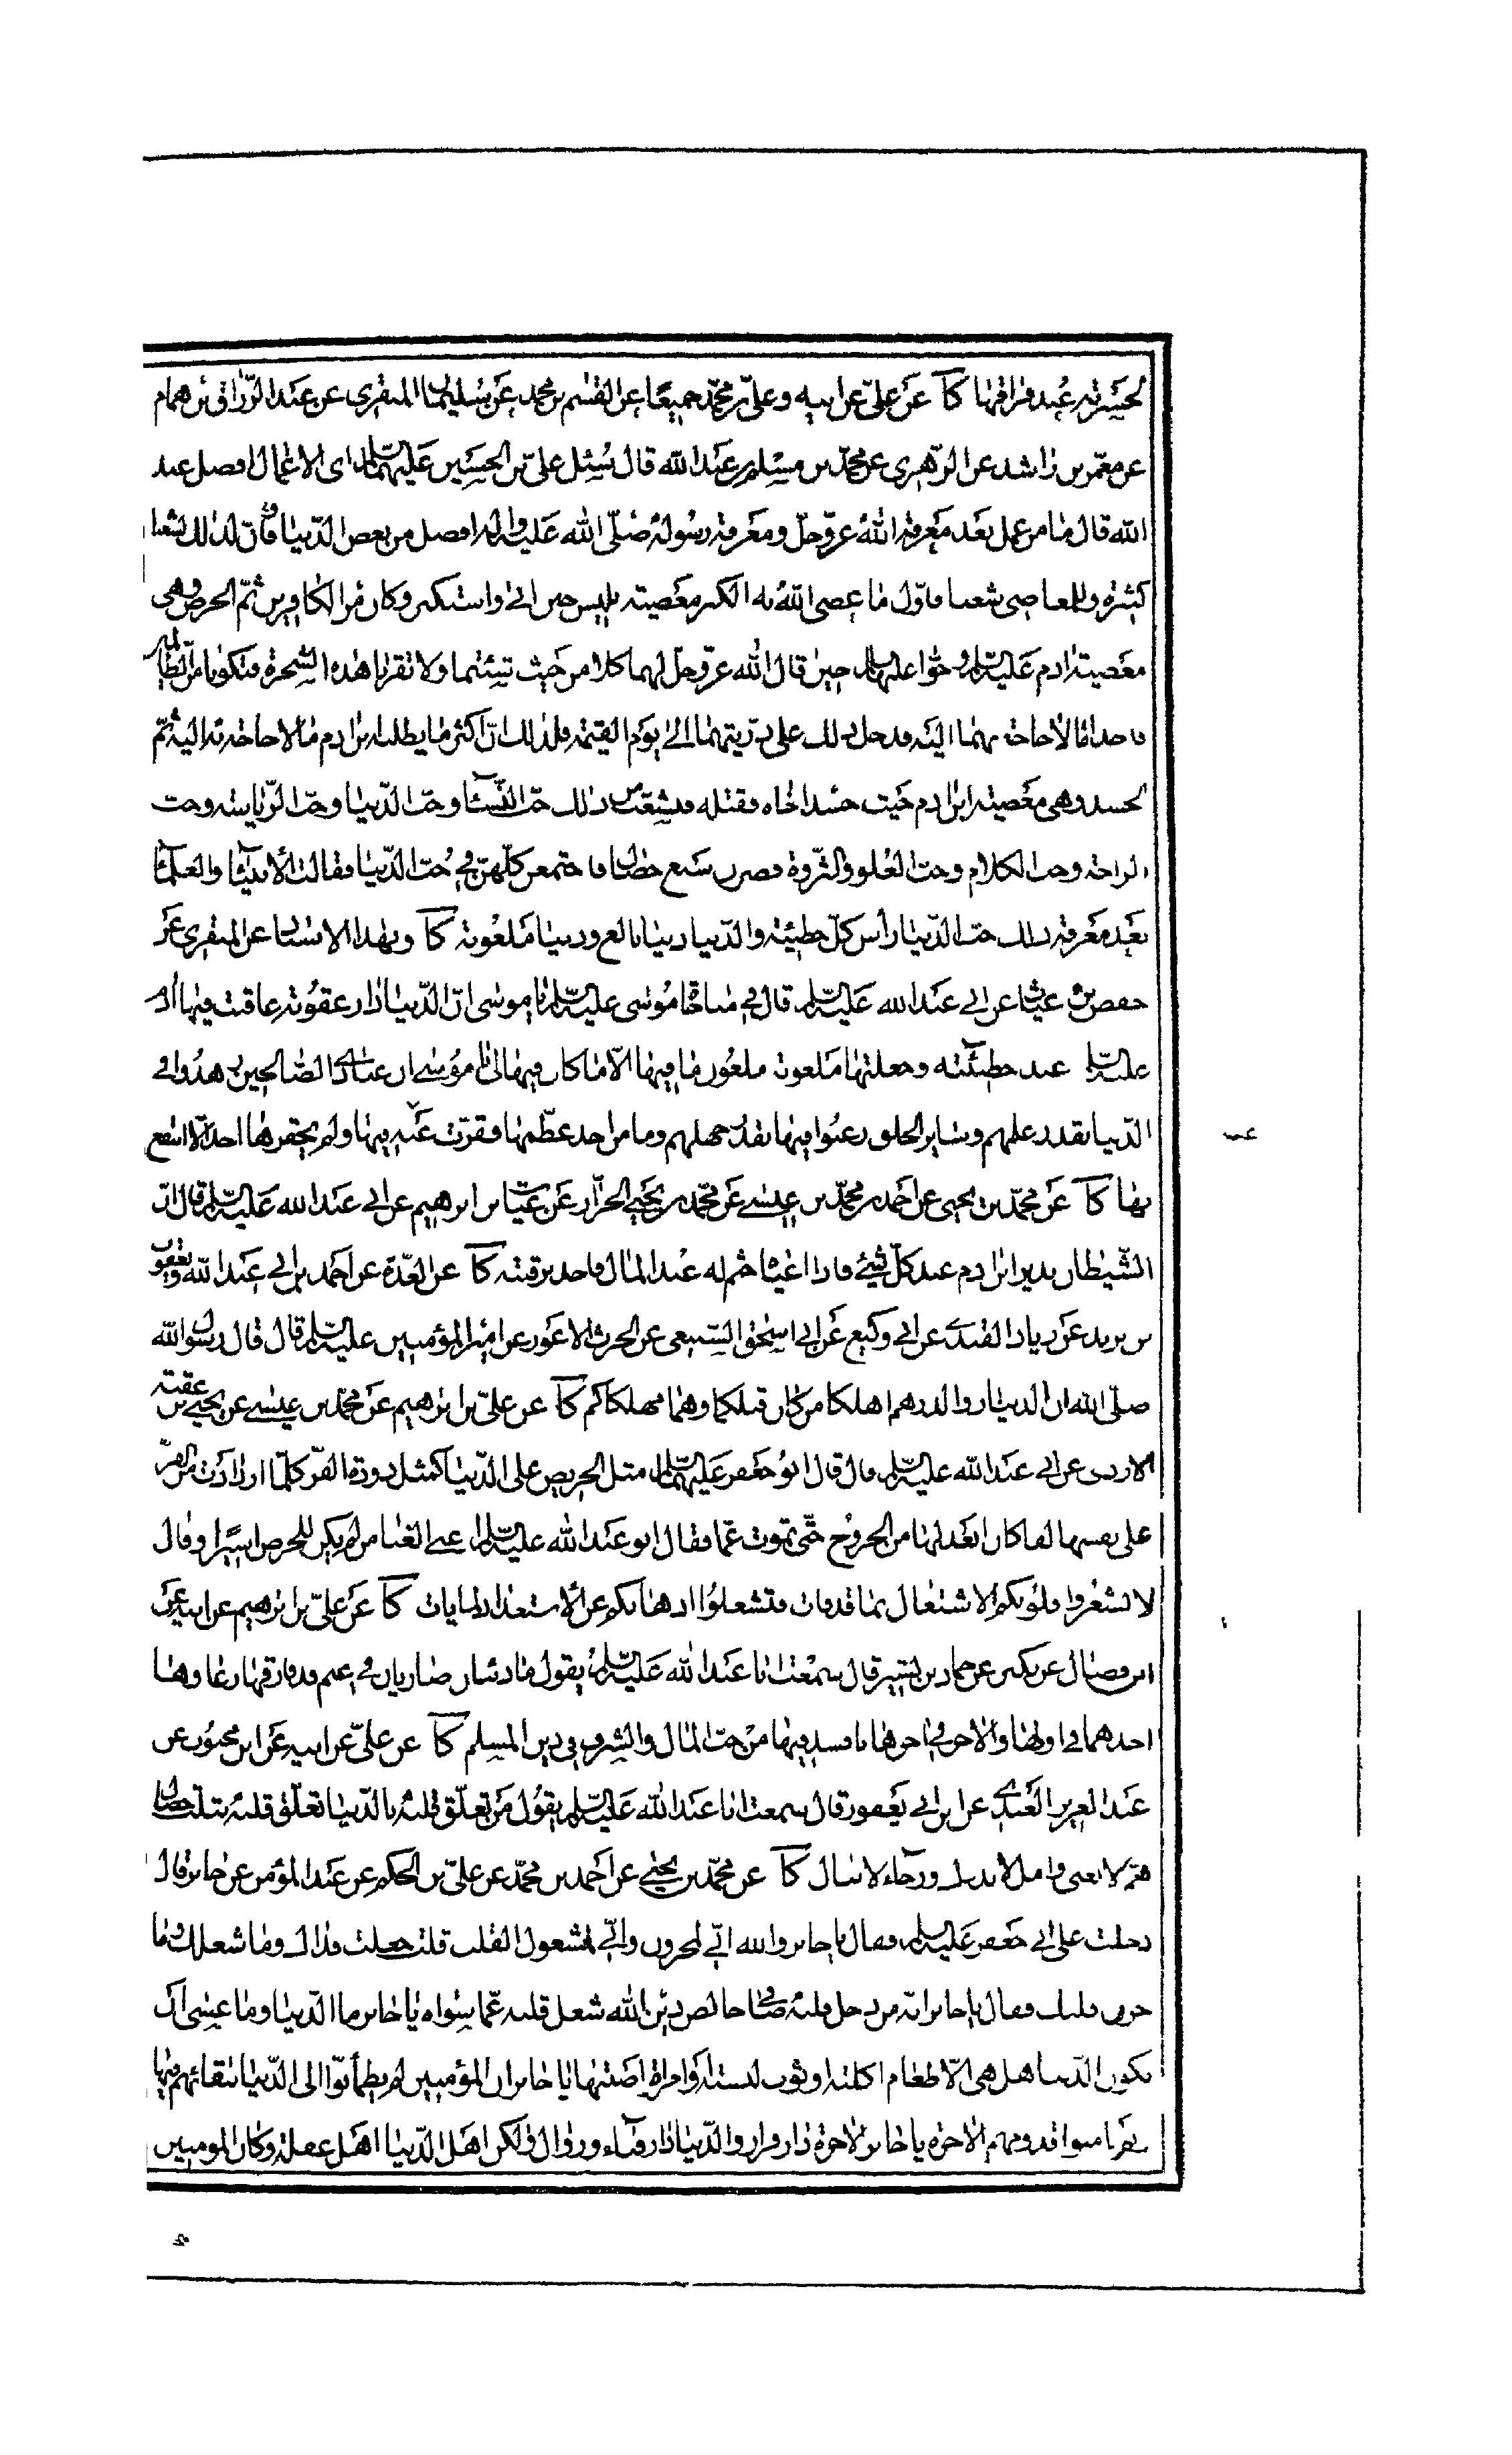 لحسرته عند فراقها كا عن علي عن ابيه وعلي بن محمد جميعا عن القسم بن محمد عن سليمان المنقري عن عبد الرزاق بن همام
عن معمر بن راشد عن الزهري عن محمد بن مسلم بن عبد الله قال سئل علي بن الحسين عليهما السلام اى الاعمال افضل عند
الله قال ما من عمل بعد معرفة الله عز وجل ومعرفة رسوله صلى الله عليه واله افضل من بغض الدنيا فان لذلك لشعبا
كثيرة وللمعاصى شعب فاول ما عصى الله به الكبر معصية ابليس حين ابى واستكبر وكان من الكافرين ثم الحرص وهى
معصية ادم عليه السلم وحوا عليهما السلم حين قال الله عز وجل لهما كلا من حيث شئتما ولا تقربا هذه الشجرة فتكونا من الظالمين
فاخذا ما لا حاجة بهما اليه فدخل ذلك على ذريتهما الى يوم القيمة فلذلك ان اكثر ما يطلب ابن ادم ما لا حاجة به اليه ثم
الحسد وهى معصية ابن ادم حيث حسد اخاه فقتله فتشعب من ذلك حب النساء وحب الدنيا وحب الرياسة وحب
الراحة وحب الكلام وحب العلو والثروة فصرن سبع خصال فاجتمعن كلهن في حب الدنيا فقالت الأنبياء والعلماء
بعد معرفة ذلك حب الدنيا رأس كل خطيئة والدنيا دنيا بلاغ ودنيا ملعونة كا وبهذا الاسناد عن المنقري عن
حفص بن غياث عن ابي عبد الله عليه السلم قال في مناجاة موسى عليه السلم يا موسى ان الدنيا دار عقوبة عاقبت فيها ادم
عليه السلم عند خطيئته وجعلتها ملعونة ملعون ما فيها الا ما كان فيها لى يا موسى ان عبادى الصالحين زهدوا في
الدنيا بقدر علمهم وساير الخلق رغبوا فيها بقدر جهلهم وما من احد عظمها فقرت عينه فيها ولم يحقرها احد الا انتفع
بها كا عن محمد بن يحيى عن احمد بن محمد بن عيسى عن محمد بن يحيى الخزاز عن غياث بن ابرهيم عن ابي عبد الله عليه السلم قال ان
الشيطان يدير ابن ادم عند كل شيئ فاذا اعياه جثم له عند المال فاخذ برقبته كا عن العدة عن احمد بن ابي عبد الله عن يعقوب
بن يزيد عن زياد القندى عن ابي وكيع عن ابي اسحق السبيعى عن الحرث الاعور عن امير المؤمنين عليه السلم قال قال رسول الله
صلى الله ان الدينار والدرهم اهلكا من كان قبلكم وهما مهلكاكم كا عن علي بن ابرهيم عن محمد بن عيسى عن يحيى بن عقبة
الازدى عن ابي عبد الله عليه السلم قال قال ابو جعفر عليهما السلم مثل الحريص على الدنيا كمثل دودة القز كلما ازدادت من القز
على نفسها لفا كان ابعد لها من الخروج حتى تموت غما فقال ابو عبد الله عليه السلم اغنى الغنا من لم يكن للحرص اسيرا وقال
لا تشعروا قلوبكم الاشتغال بما قد فات فتشغلوا اذهانكم عن الاستعداد لما يات كا عن علي بن ابرهيم عن ابيه عن
ابن فضال عن بكير عن حماد بن بشير قال سمعت ابا عبد الله عليه السلم يقول ما ذئبان ضاريان في غنم قد فارقها رعاوها
احدهما في اولها والاخر في اخرها بافسد فيها من حب المال والشرف في دين المسلم كا عن علي عن ابيه عن ابن محبوب عن
عبد العزيز العبدي عن ابن ابي يعفور قال سمعت ابا عبد الله عليه السلم يقول من تعلق قلبه بالدنيا تعلق قلبه بثلث خصال
هم لا يفنى وامل لا يدرك ورجاء لا ينال كا عن محمد بن يحيى عن احمد بن محمد عن علي بن الحكم عن عبد المؤمن عن جابر قال
دخلت على ابي جعفر عليه السلم فقال يا جابر والله انى لمحزون وانى لمشغول القلب قلت جعلت فداك وما شغلك وما
حزن قلبك فقال يا جابر انه من دخل قلبه صافى خالص دين الله شغل قلبه عما سواه يا جابر ما الدنيا وما عسى ان
تكون الدنيا هل هى الا طعام اكلته او ثوب لبسته او امراة اصبتها يا جابر ان المؤمنين لم يطمأنوا الى الدنيا ببقائهم فيها
ولم يامنوا قدومهم الاخرة يا جابر الاخرة دار قرار والدنيا دار فناء وزوال ولكن اهل الدنيا اهل غفلة وكان المومنين